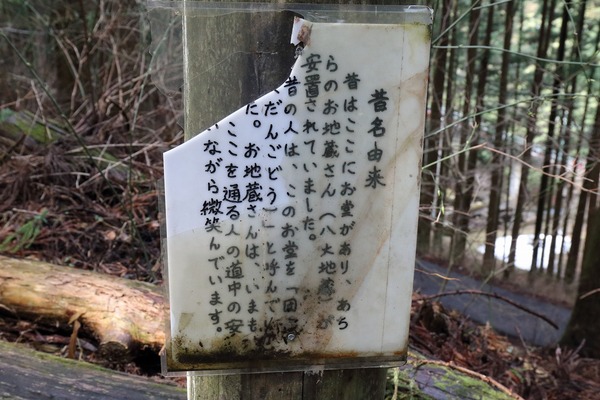 昔名由来
昔はここにお堂があり、あち
らのお地蔵さん(八大地蔵)が
安置されていました。
昔の人は、このお堂を「団
だんごどう)」と呼んで
た。お地蔵さんは、いまも
ここを通る人の道中の安
いながら微笑んでいます。